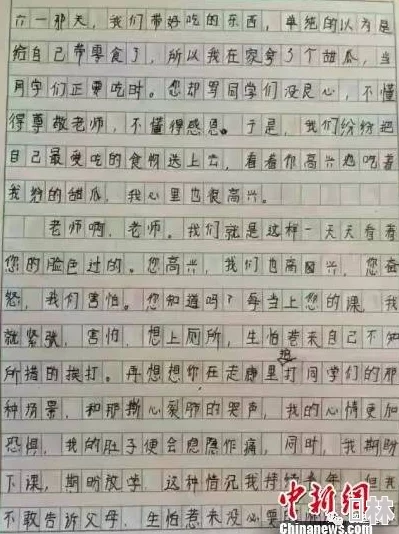 六一那天，我们带好吃的东西，单纯的以为是
给自己带零食了，所以我在家拿了个甜瓜，当
同学们正要吃时。您却骂同学们没良心，不懂
得尊敬老师，不懂得感恩。于是，我们纷纷把
自己最爱吃的食物送上去，看着你高兴地吃着
我给的甜瓜，我心里也很高兴。
老师啊，老师。我们就是这样一天天看着
您的脸色过的。您高兴，我们也高兴，您奋
怒，我们害怕。您知道吗？每当上您的课，我
就紧张，害怕，想上厕所，生怕惹来自己不知
所措的挨打。再想想你在走廊里追打同学们的那
种场景，和那撕心裂肺的哭声，我的心情更加
恐惧，我的肚子便会隐隐作痛，同时，我期盼
下课，期盼放学。这种情况我持续 但我
不敢告诉父母，生怕惹来没必要
中新网
Chinanews.com
林